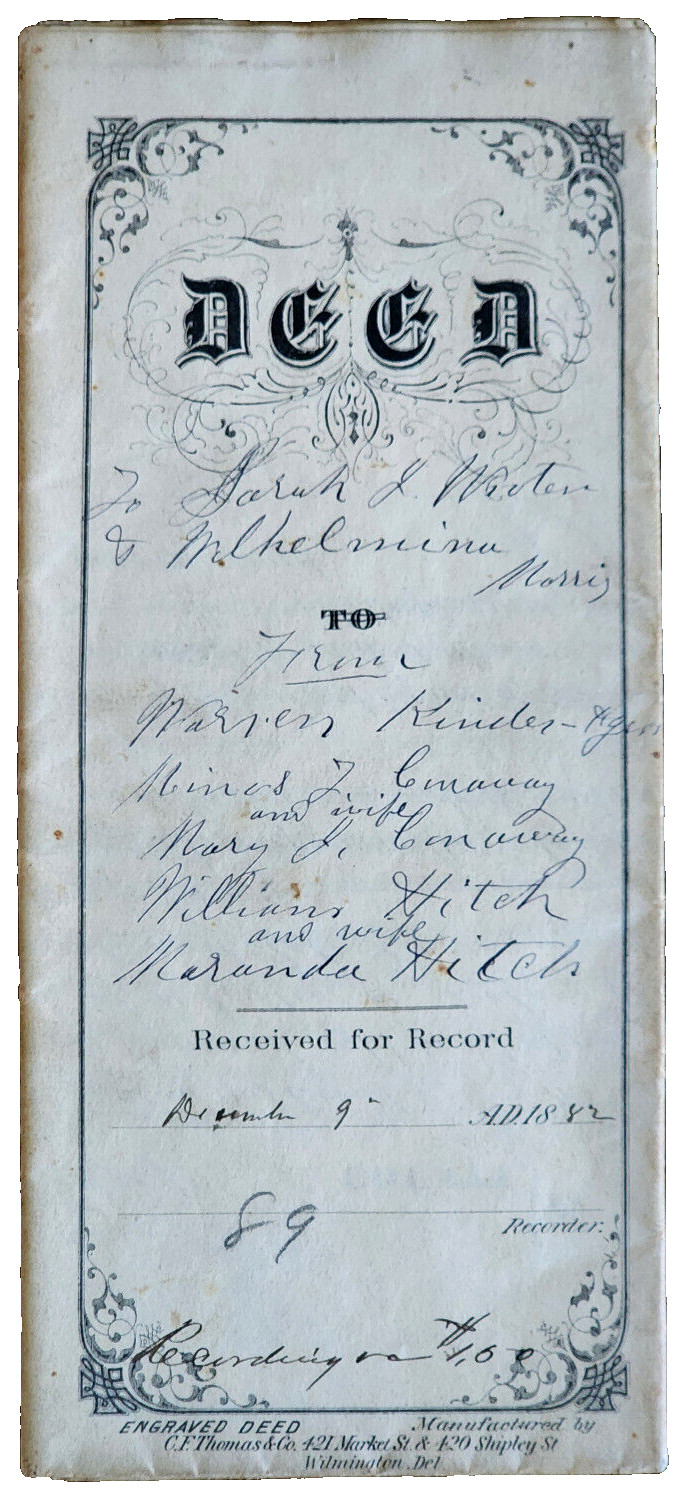 DEED
To Sarah J. Wooten
& Wilhelmina
Morris
TO
From
Warren Kinder -
Minos T. Conaway
and wife
Mary J. Conaway
William Hitch
and wife
Maranda Hitch
Received for Record
December 9" A.D. 1882
89
Recorder.
Recording $1,00
ENGRAVED DEED Manufactured by
C.F. Thomas & Co. 421 Market St. & 420 Shipley St
Wilmington Del